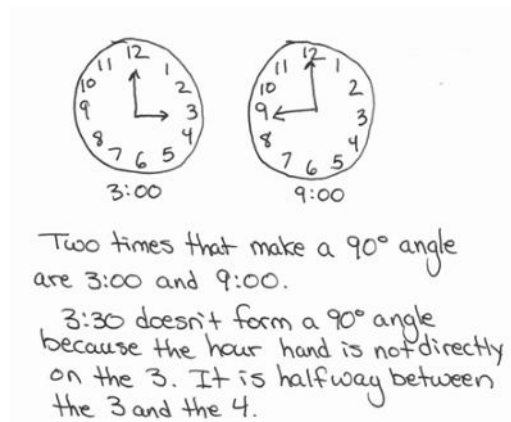 12
11 1
10 2
9 3
8 4
7 6 5
3:00
12
11 1
10 2
9 3
8 4
7 6 5
9:00
Two times that make a 90° angle
are 3:00 and 9:00.
3:30 doesn't form a 90° angle
because the hour hand is not directly
on the 3. It is halfway between
the 3 and the 4.